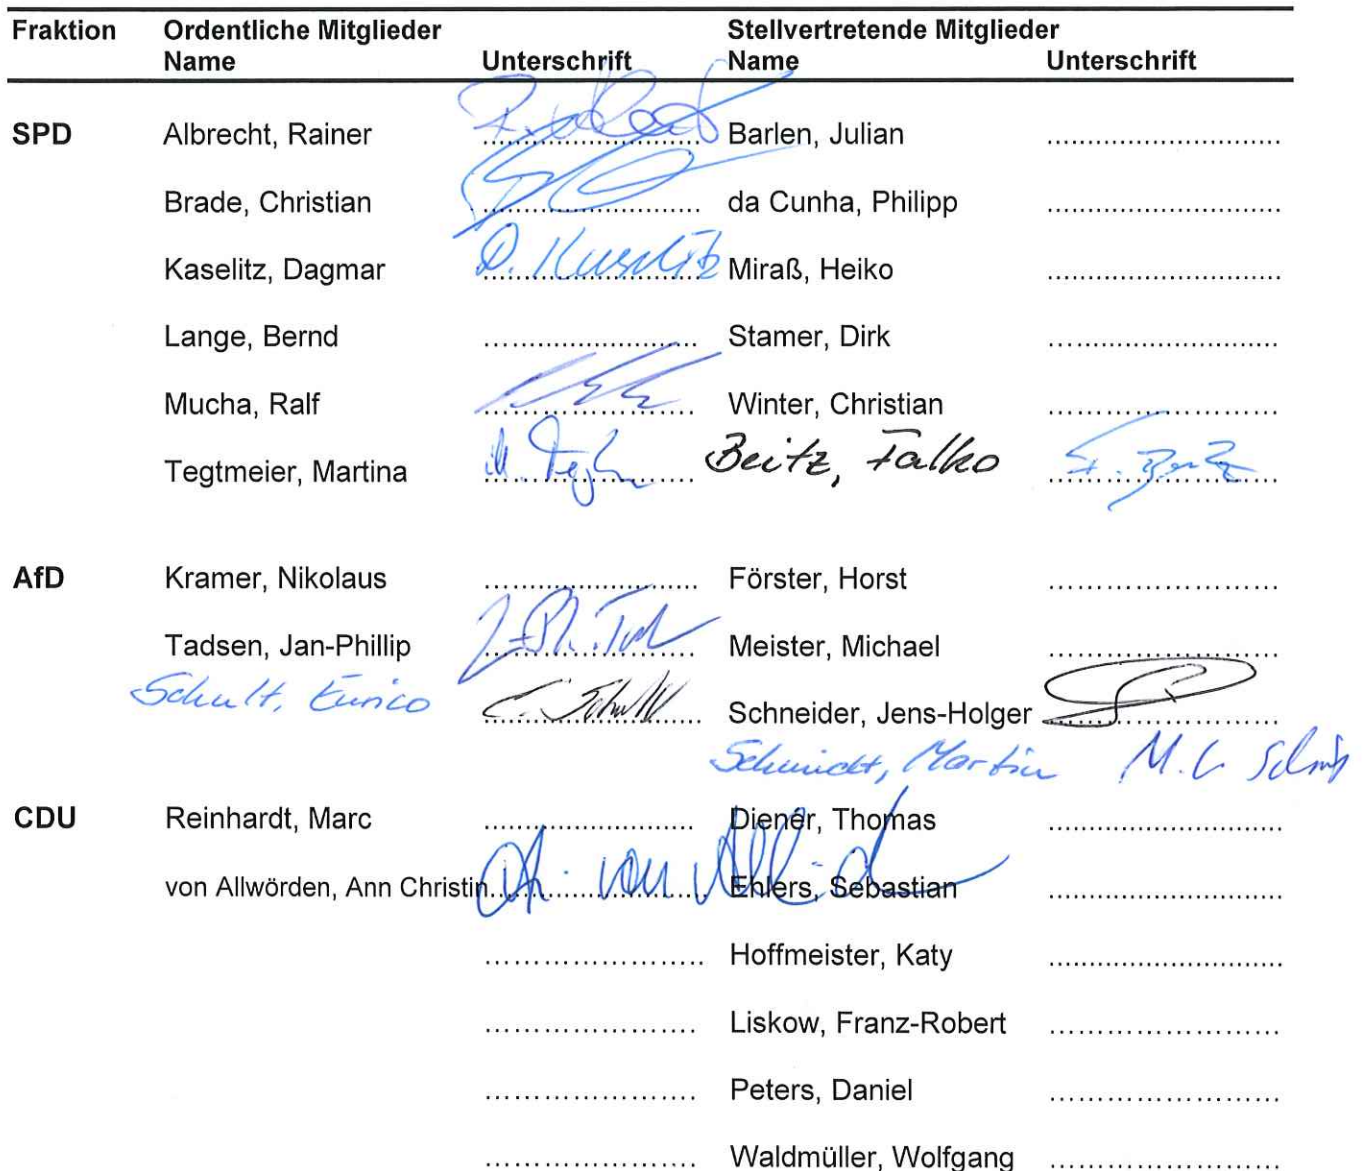 Fraktion Ordentliche Mitglieder Stellvertretende Mitglieder
Name Unterschrift Name Unterschrift
SPD Albrecht, Rainer Barlen, Julian
Brade, Christian da Cunha, Philipp
Kaselitz, Dagmar D. Kaselitz Miraß, Heiko
Lange, Bernd Stamer, Dirk
Mucha, Ralf Winter, Christian
Tegtmeier, Martina Beitz, Falko F. Beitz
AfD Kramer, Nikolaus Förster, Horst
Tadsen, Jan-Phillip Meister, Michael
Schult, Enrico E. Schult Schneider, Jens-Holger
Schmidt, Martin
CDU Reinhardt, Marc Diener, Thomas
von Allwörden, Ann Christin Ehlers, Sebastian
Hoffmeister, Katy
Liskow, Franz-Robert
Peters, Daniel
Waldmüller, Wolfgang